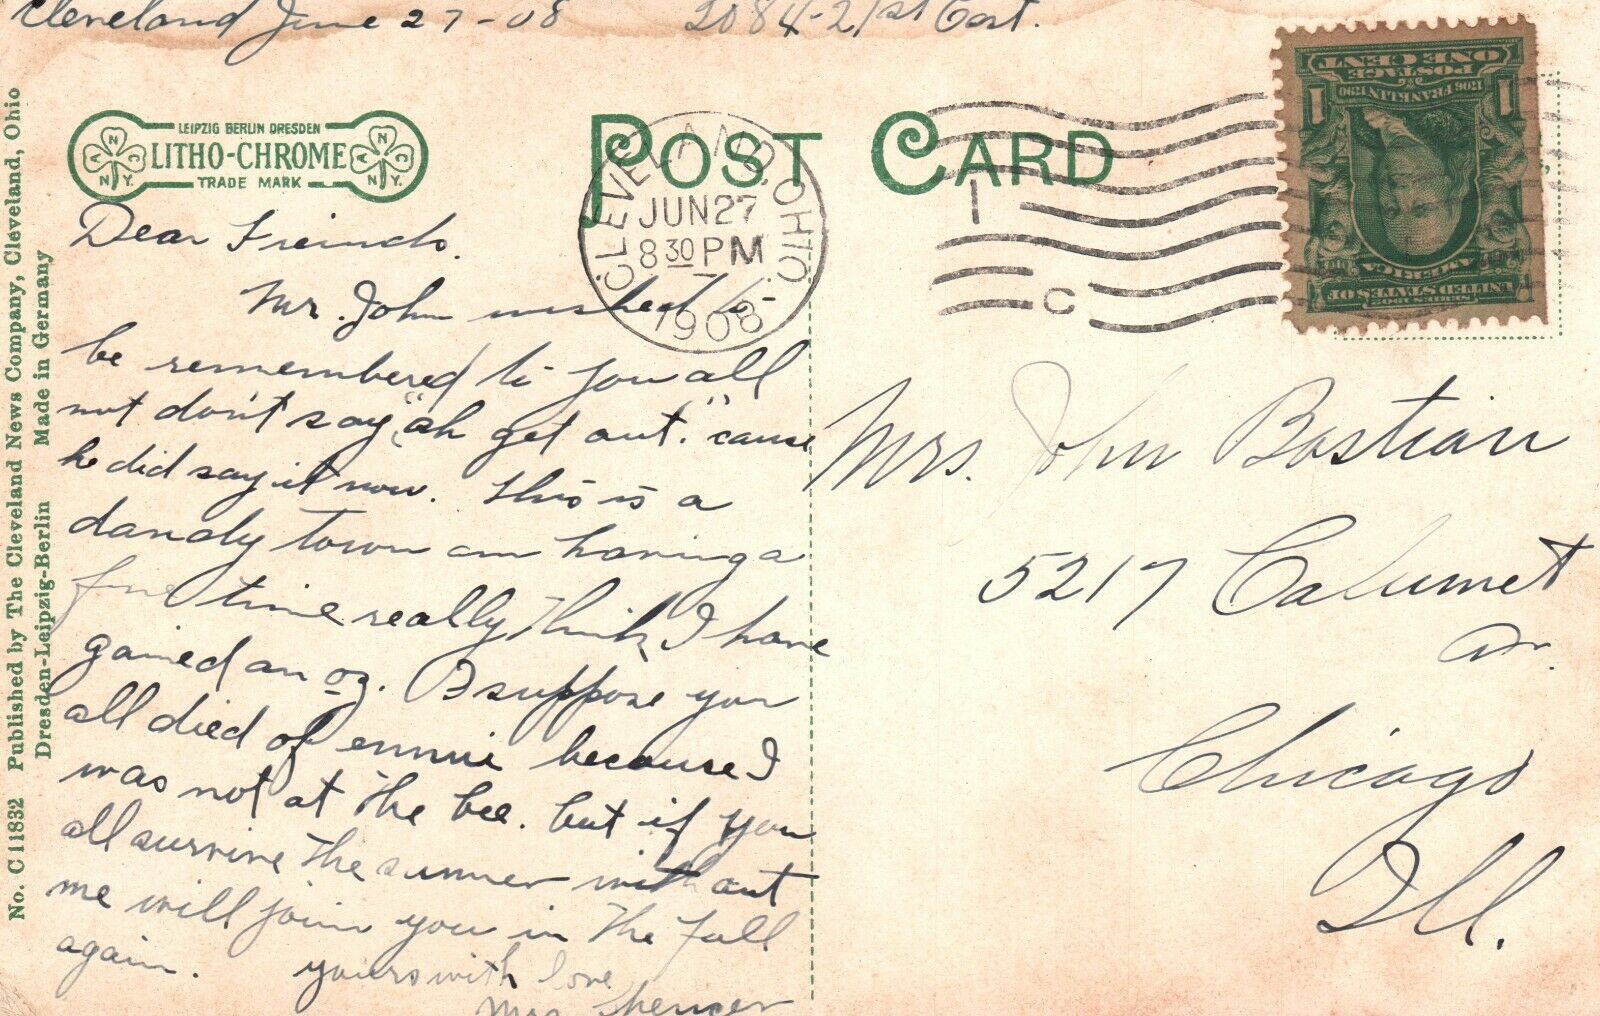 Cleveland June 27-08 2084-21st East.
LEIPZIG BERLIN DRESDEN
LITHO-CHROME
TRADE MARK
ANC
N.Y.
ANC
N.Y.
POST CARD
CLEVELAND, OHIO
JUN 27
8 30 PM
1908
1 C
POSTAGE
ONE CENT
1706 FRANKLIN 1790
1 1
SERIES 1902
UNITED STATES OF
AMERICA
No. C 11832 Published by The Cleveland News Company, Cleveland, Ohio
Dresden-Leipzig-Berlin Made in Germany
Dear Freinds.
Mr. John wished to
be remembered to you all
not don't say "ah get out." cause
he did say it now. This is a
dandy town am having a
fine time really think I have
gained an oz. I suppose you
all died of ennui because I
was not at the bee. but if you
all survive the summer without
me will join you in the fall
again. yours with love
Mrs Spencer
Mrs. John Bastian
5217 Calumet
Av.
Chicago
Ill.